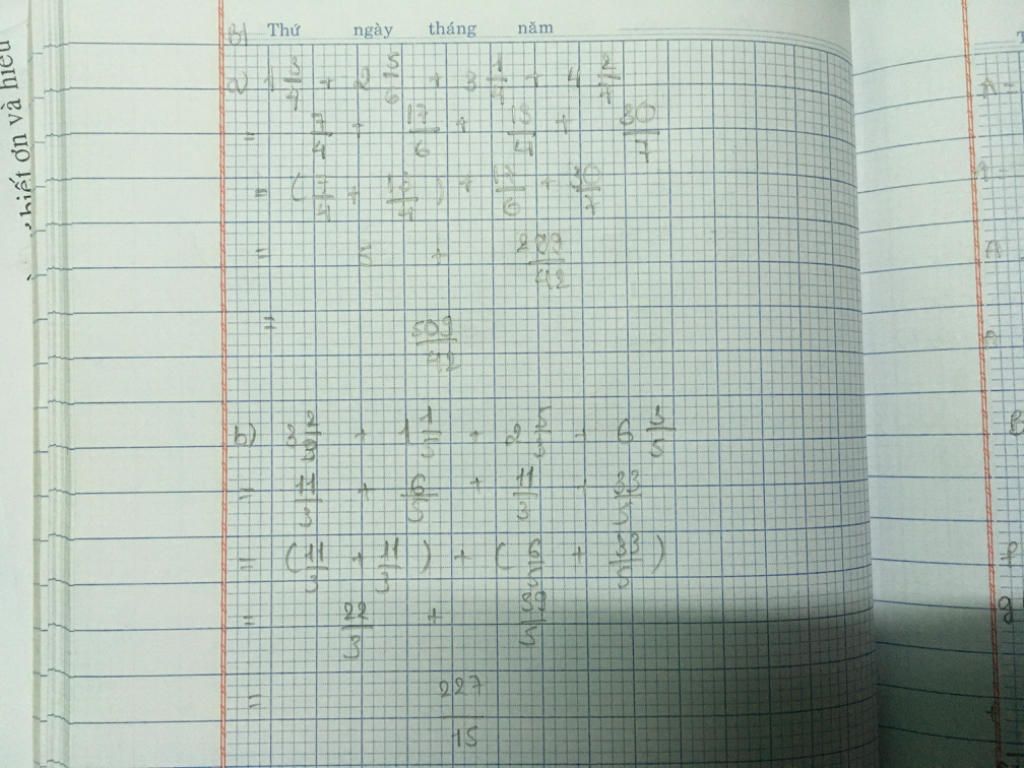 biết ơn và hiếu
Thứ ngày tháng năm
a) 1 3/4 + 2 5/6 + 3 1/4 + 4 2/7
= 7/4 + 17/6 + 13/4 + 30/7
= (7/4 + 13/4) + 17/6 + 30/7
= 5 + 299/42
= 509/42
b) 3 2/3 + 1 1/5 + 2 5/3 + 6 3/5
= 11/3 + 6/5 + 11/3 + 33/5
= (11/3 + 11/3) + (6/5 + 33/5)
= 22/3 + 39/5
= 227/15